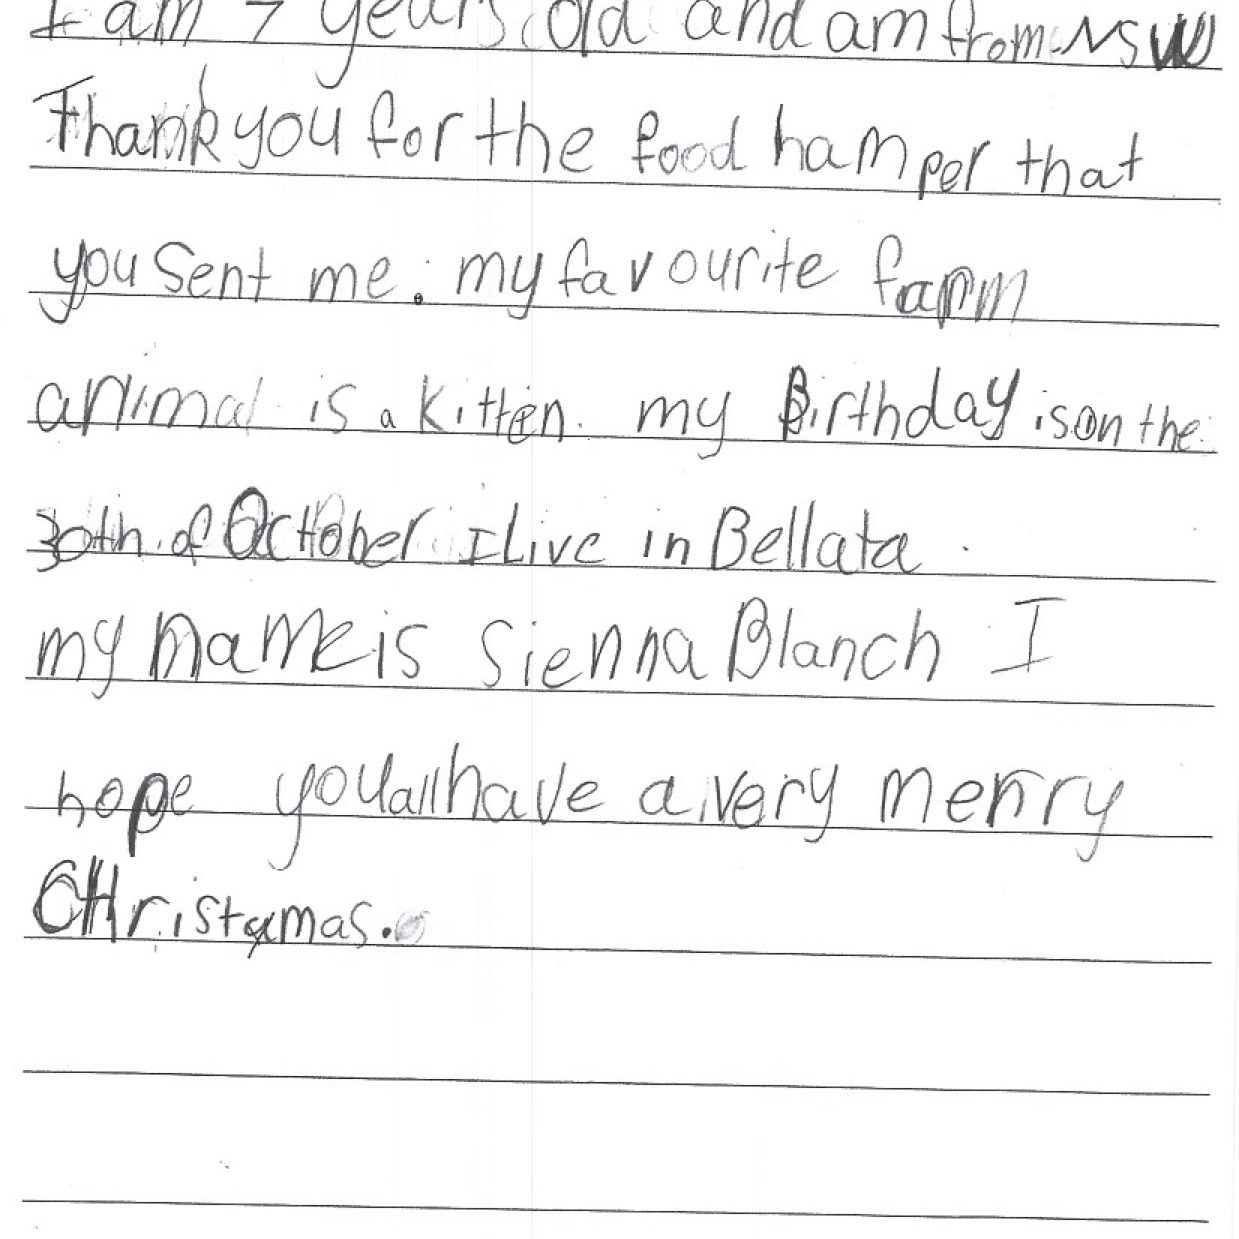 I am 7 years old and am from NSW
Thank you for the food hamper that
you sent me. my favourite farm
animal is a kitten. my Birthday is on the
30th of October I Live in Bellata.
my name is Sienna Blanch I
hope you all have a very merry
CHristmas.